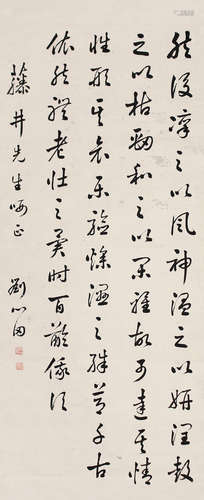 然後凜之以風神溫之以妍潤鼓
之以枯勁和之以閑雅故可達其情
性形其哀樂驗燥濕之殊節千古
依然體老壯之異時百齡俄頃
藤井先生哂正
劉心田